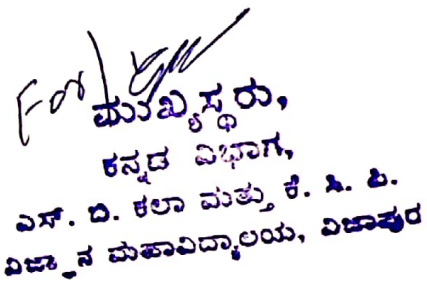 For
ಮುಖ್ಯಸ್ಥರು,
ಕನ್ನಡ ವಿಭಾಗ,
ಎಸ್. ಬಿ. ಕಲಾ ಮತ್ತು ಕೆ. ಸಿ. ಪಿ.
ವಿಜ್ಞಾನ ಮಹಾವಿದ್ಯಾಲಯ, ವಿಜಾಪುರ